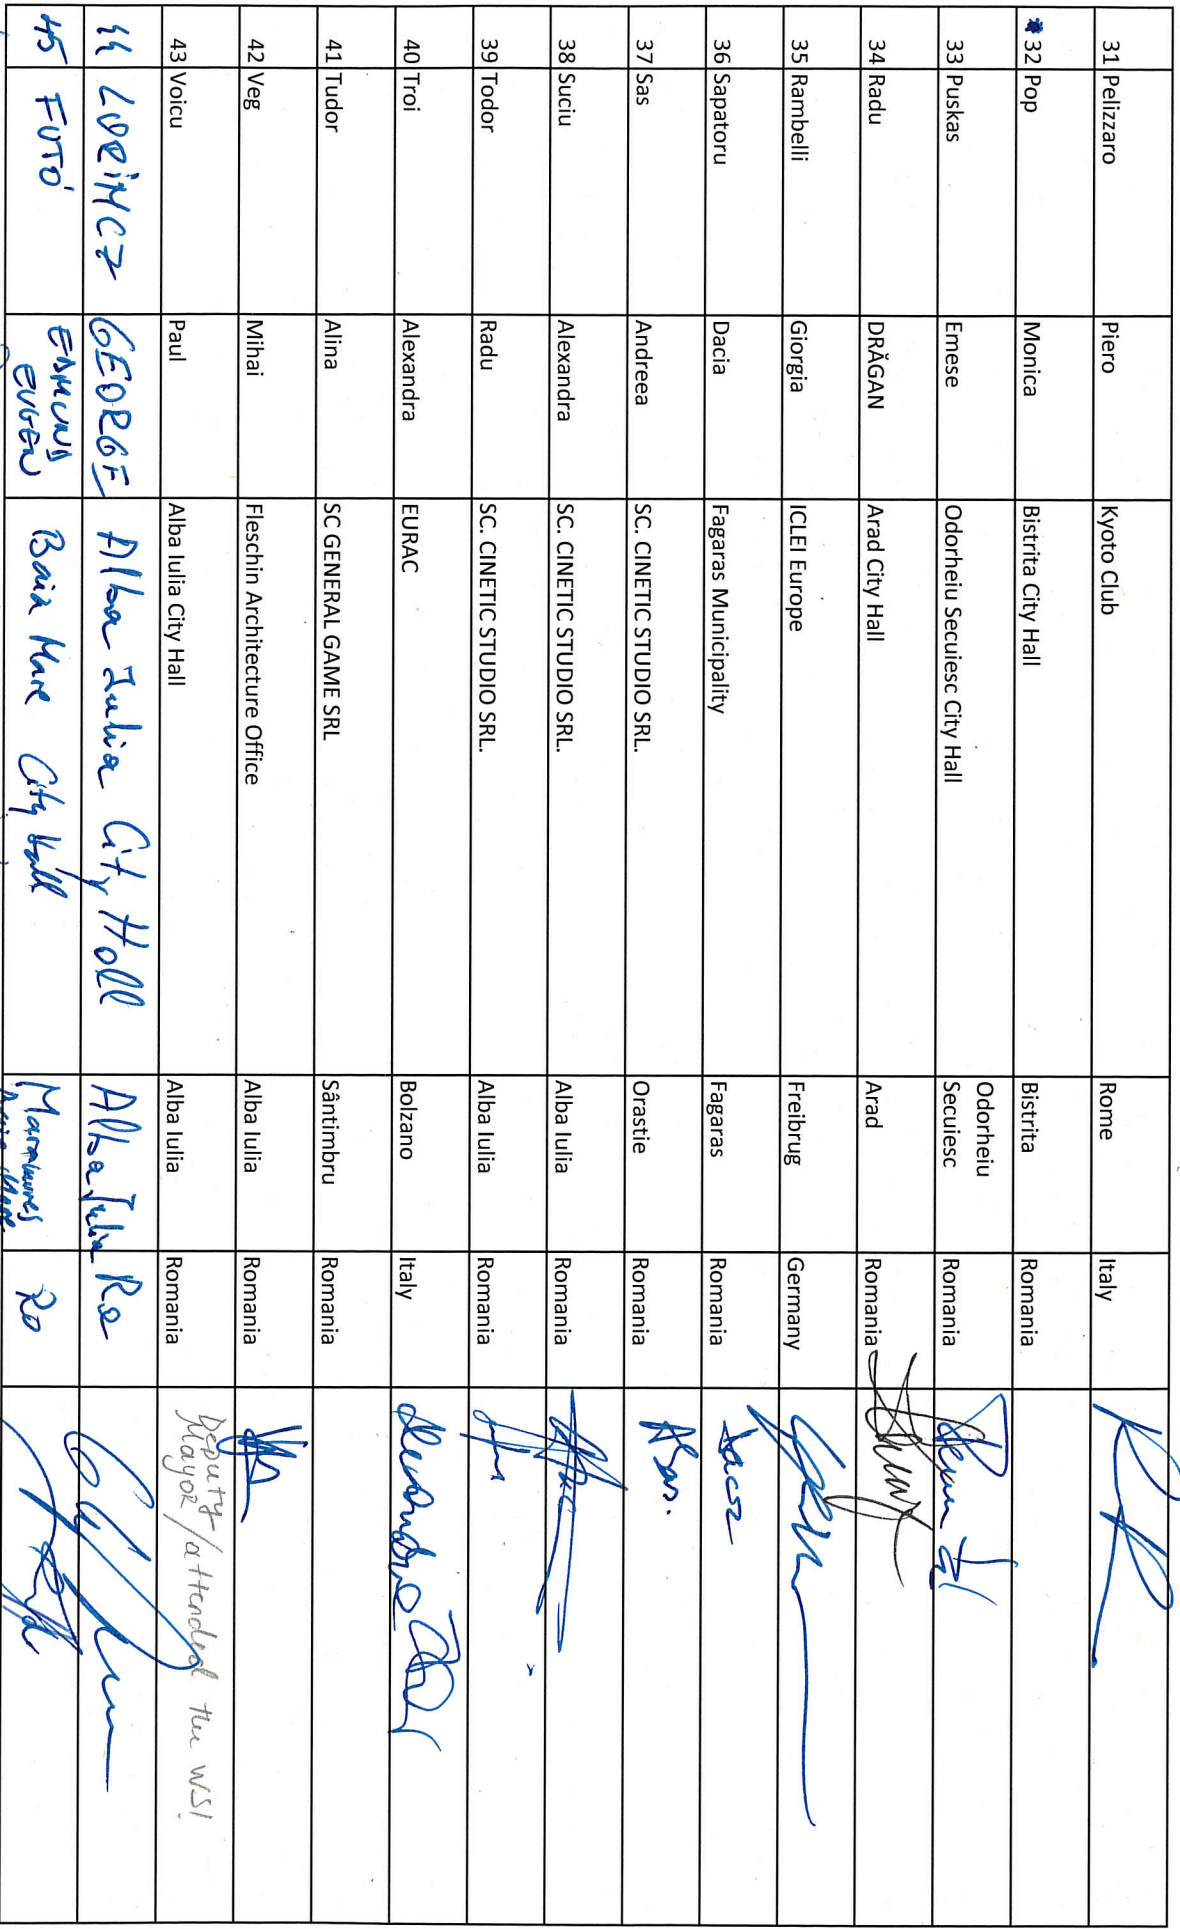 31 Pelizzaro Piero Kyoto Club Rome Italy
32 Pop Monica Bistrita City Hall Bistrita Romania
33 Puskas Emese Odorheiu Secuiesc City Hall Odorheiu Secuiesc Romania
34 Radu DRĂGAN Arad City Hall Arad Romania
35 Rambelli Giorgia ICLEI Europe Freibrug Germany
36 Sapatoru Dacia Fagaras Municipality Fagaras Romania
37 Sas Andreea SC. CINETIC STUDIO SRL. Orastie Romania ASas.
38 Suciu Alexandra SC. CINETIC STUDIO SRL. Alba Iulia Romania
39 Todor Radu SC. CINETIC STUDIO SRL. Alba Iulia Romania
40 Troi Alexandra EURAC Bolzano Italy
41 Tudor Alina SC GENERAL GAME SRL Sântimbru Romania
42 Veg Mihai Fleschin Architecture Office Alba Iulia Romania
43 Voicu Paul Alba Iulia City Hall Alba Iulia Romania Deputy Mayor / attended the WS!
44 LORINCZ GEORGE Alba Iulia City Hall Alba Iulia Ro
45 FUTÓ EDMUND EUGEN Baia Mare City Hall Maramures Baia Mare Ro